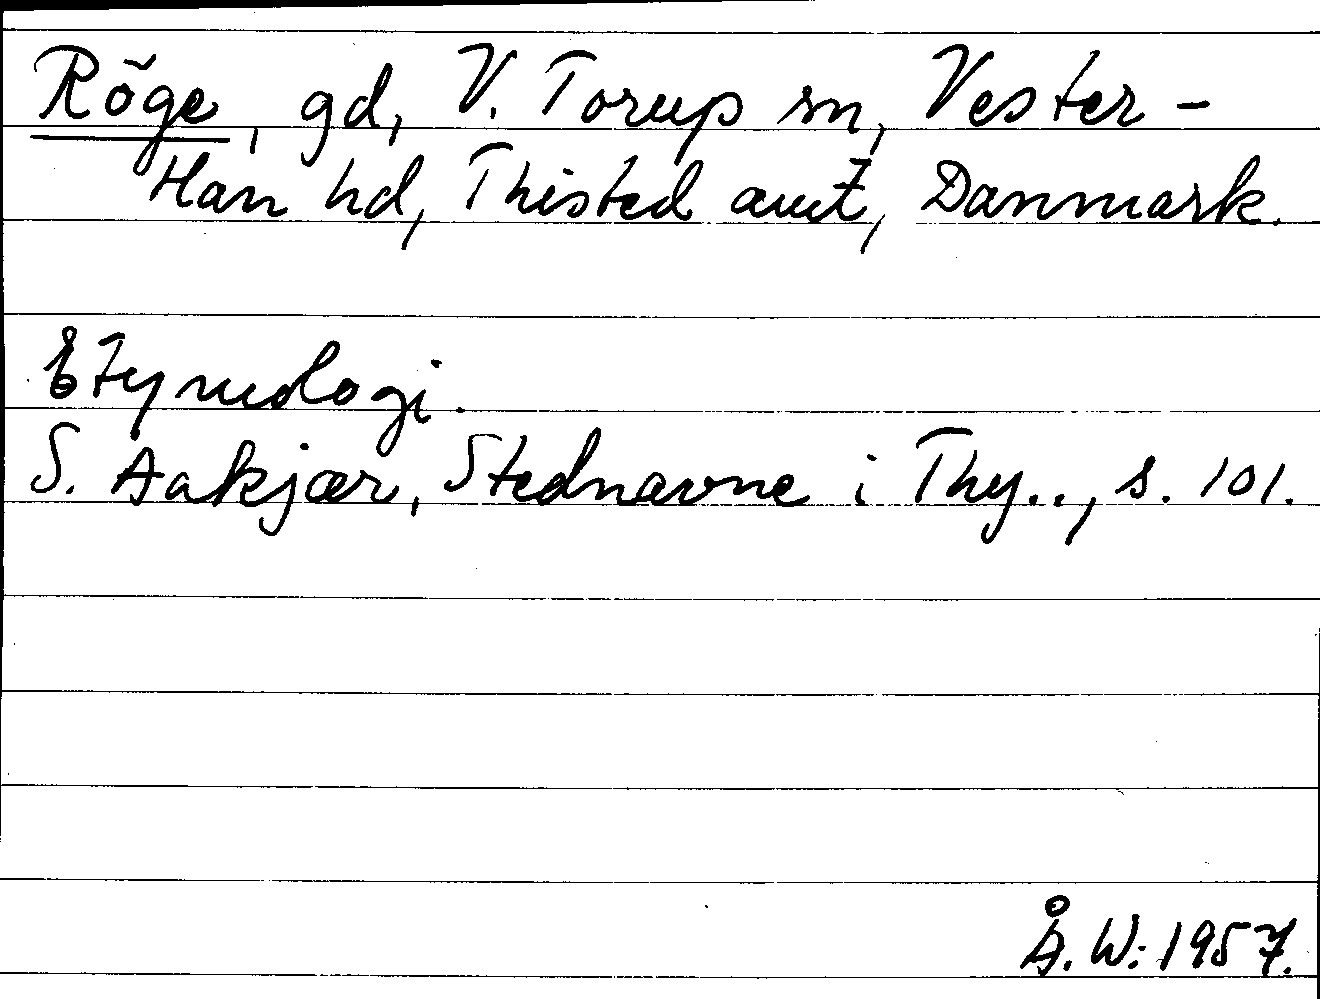 Röge, gd, V. Torup sn, Vester-
Han hd, Thisted amt, Danmark.
Etymologi.
S. Aakjær, Stednavne i Thy.., s. 101.
Å. W: 1957.